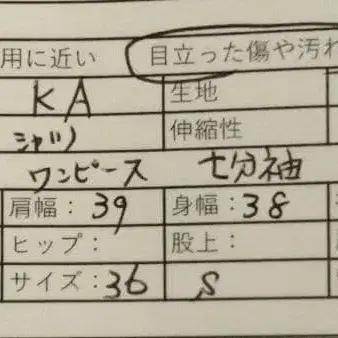 用に近い 目立った傷や汚れ
KA 生地
シャツ 伸縮性
ワンピース 七分袖
肩幅：39 身幅：38
ヒップ： 股上：
サイズ：36 S